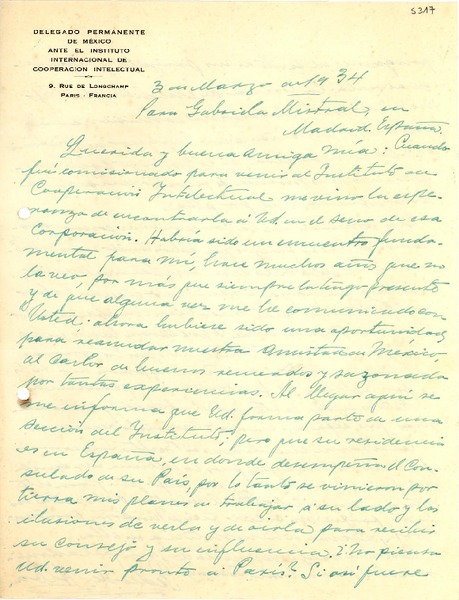 5317
DELEGADO PERMANENTE
DE MÉXICO
ANTE EL INSTITUTO
INTERNACIONAL DE
COOPERACION INTELECTUAL
9. RUE DE LONGCHAMP
PARIS - FRANCIA
3 de Marzo de 1934
Para Gabriela Mistral, en
Madrid. España.
Querida y buena amiga mía: Cuando
fuí comisionado para venir al Instituto de
Cooperación Intelectual me vino la espe-
ranza de encontrarla a Ud. en el seno de esa
Corporación. Habría sido un encuentro funda-
mental para mí, hace muchos años que no
la veo, por más que siempre la tengo presente
y de que alguna vez me he comunicado con
Usted; ahora hubiese sido una oportunidad
para reanudar nuestra amistad de México,
al calor de buenos recuerdos y sazonada
por tantas experiencias. Al llegar aquí se
me informa que Ud. forma parte de una
sección del Instituto; pero que su residencia
es en España, en donde desempeña el Con-
sulado de su País, por lo tanto se vinieron por
tierra mis planes de trabajar a su lado y las
ilusiones de verla y de oirla para recibir
su consejo y su influencia. ¿No piensa
Ud. venir pronto a París? Si así fuere